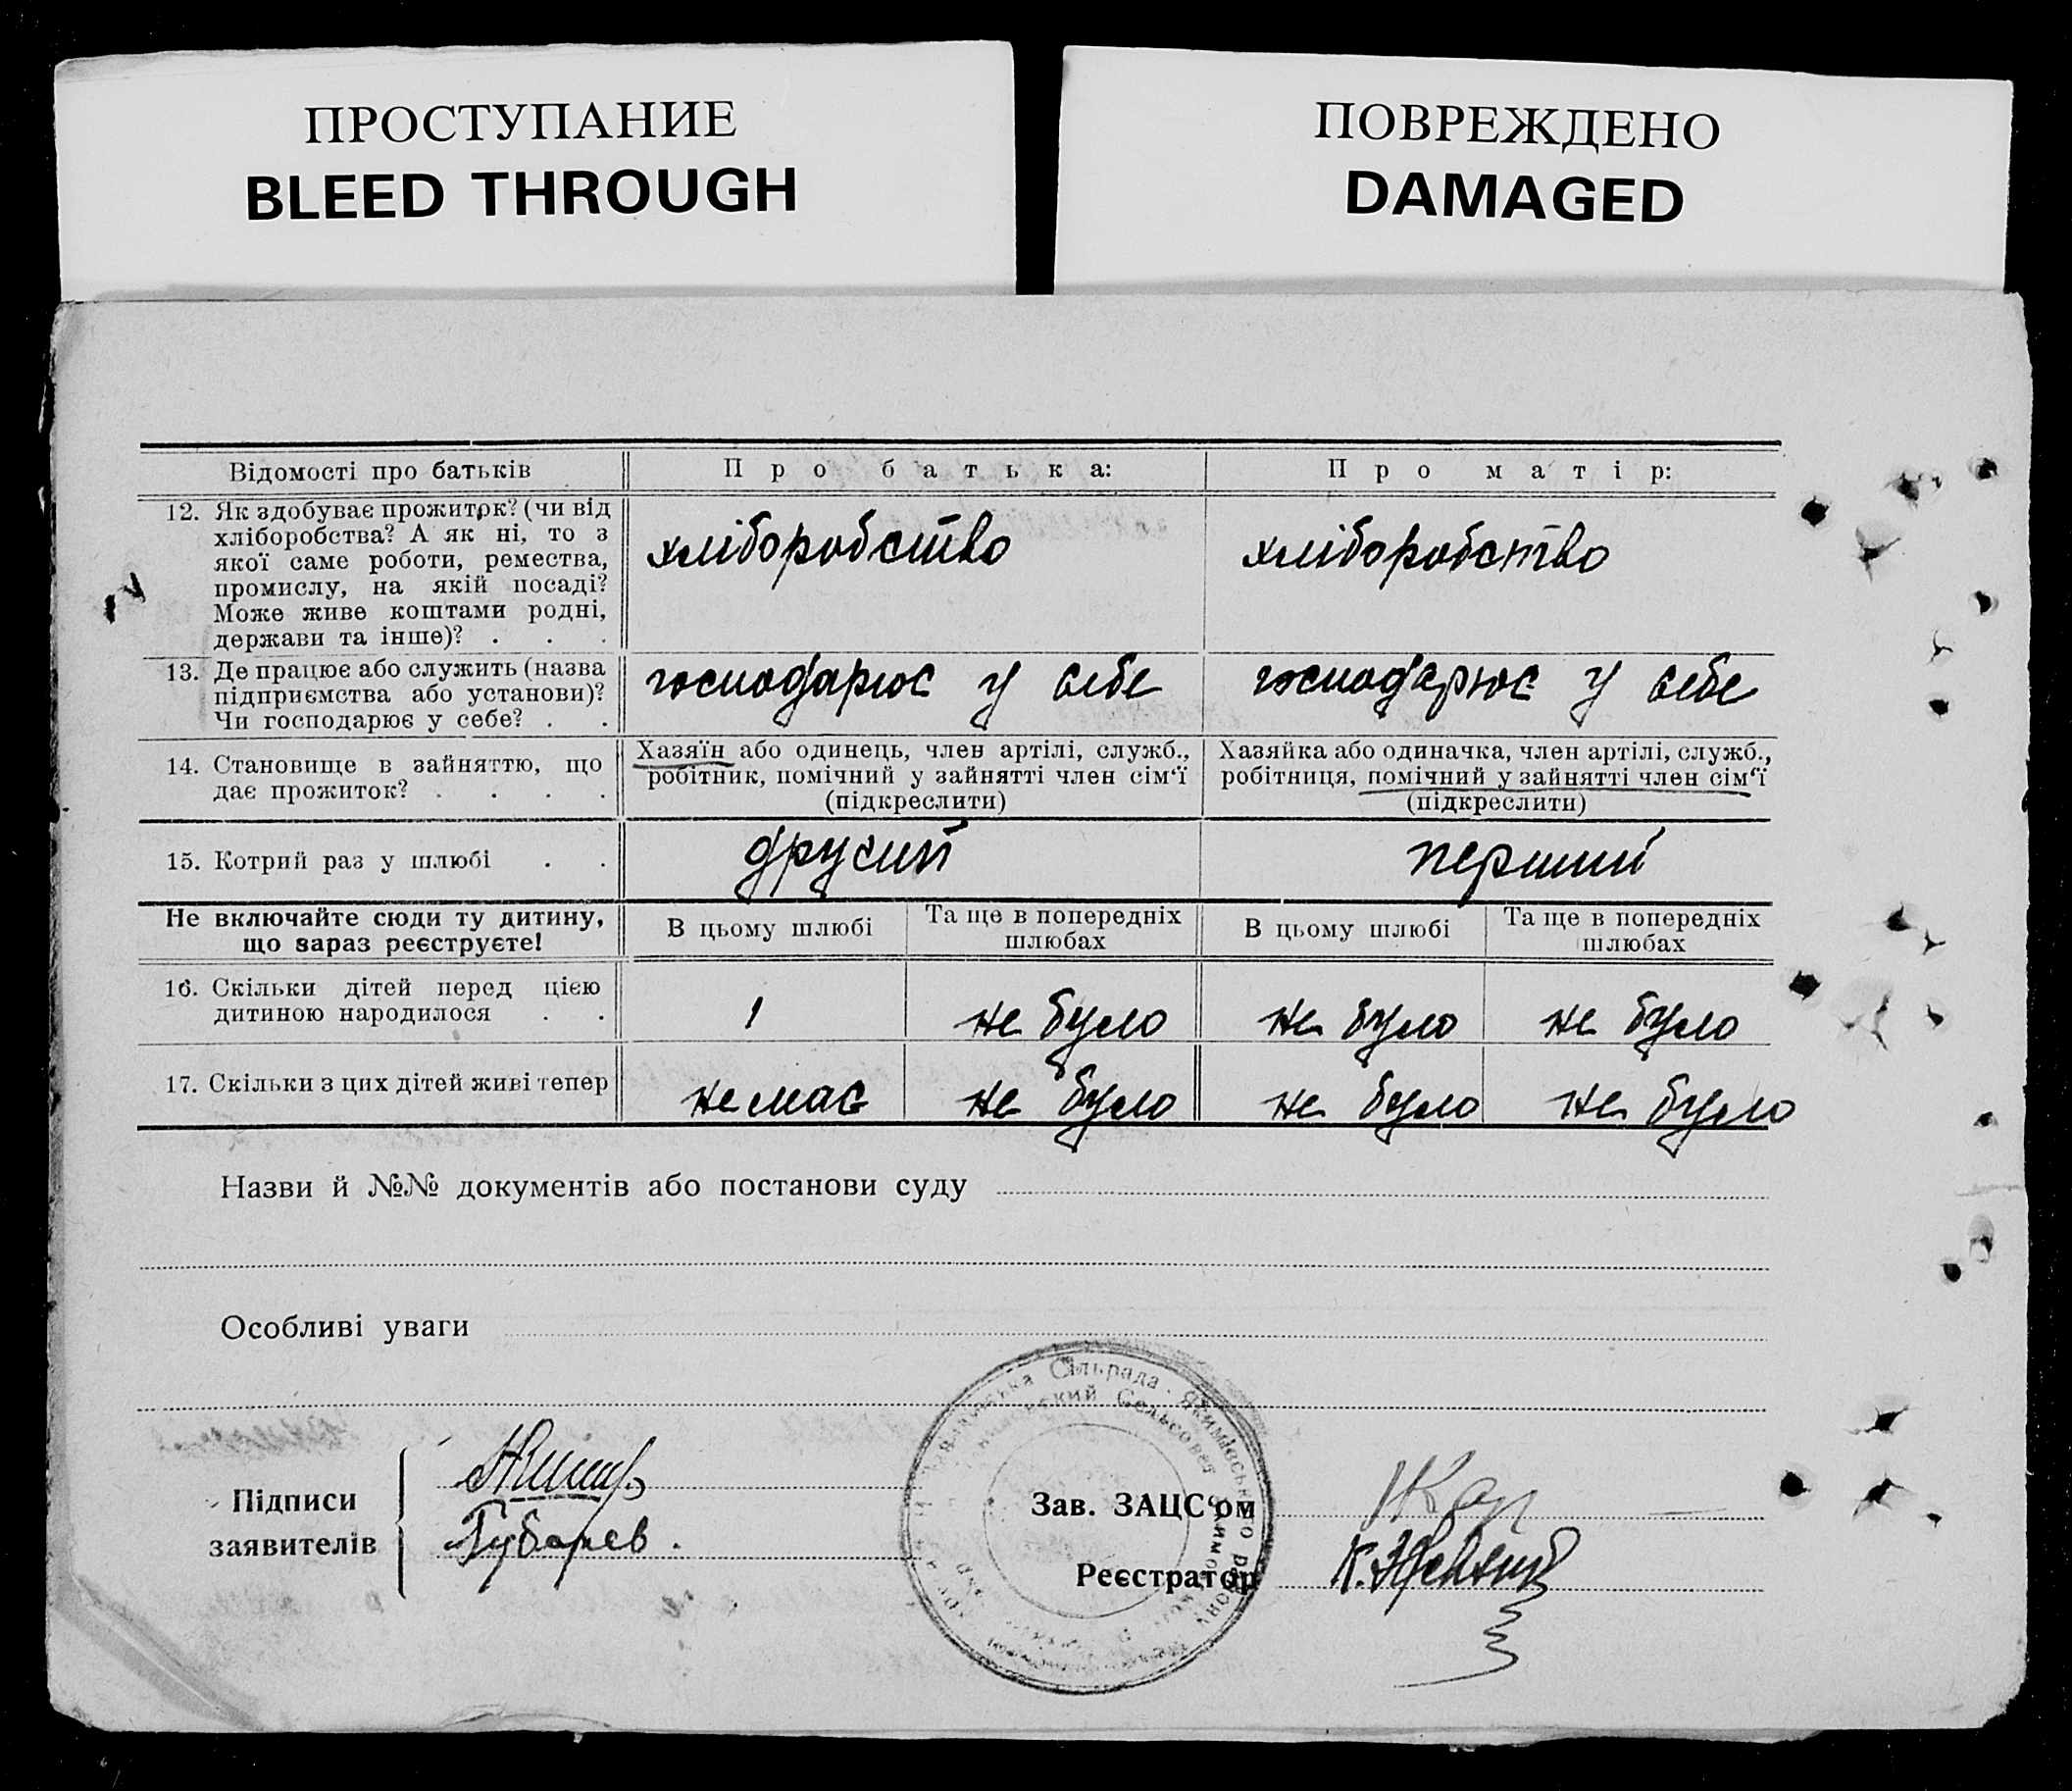 ПРОСТУПАНИЕ
BLEED THROUGH
ПОВРЕЖДЕНО
DAMAGED
Відомості про батьків
Про батька:
Про матір:
12. Як здобуває прожиток? (чи від
хліборобства? А як ні, то з
якої саме роботи, ремества,
промислу, на якій посаді?
Може живе коштами родні,
держави та інше)? . . .
хліборобство
хліборобство
13. Де працює або служить (назва
підприємства або установи)?
Чи господарює у себе? . .
господарює у себе
господарює у себе
14. Становище в зайняттю, що
дає прожиток? . . . .
Хазяїн або одинець, член артілі, служб.,
робітник, помічний у зайнятті член сім‘ї
(підкреслити)
Хазяйка або одиначка, член артілі, служб.,
робітниця, помічний у зайнятті член сім‘ї
(підкреслити)
15. Котрий раз у шлюбі . .
другий
перший
Не включайте сюди ту дитину,
що зараз реєструєте!
В цьому шлюбі
Та ще в попередніх
шлюбах
В цьому шлюбі
Та ще в попередніх
шлюбах
16. Скільки дітей перед цією
дитиною народилося . .
1
не було
не було
не було
17. Скільки з цих дітей живі тепер
немає
не було
не було
не було
Назви й №№ документів або постанови суду
Особливі уваги
Сільрада. Якимівського району
Сельсовет
Підписи
заявителів
Губарев.
Зав. ЗАЦС‘ом
Реєстратор